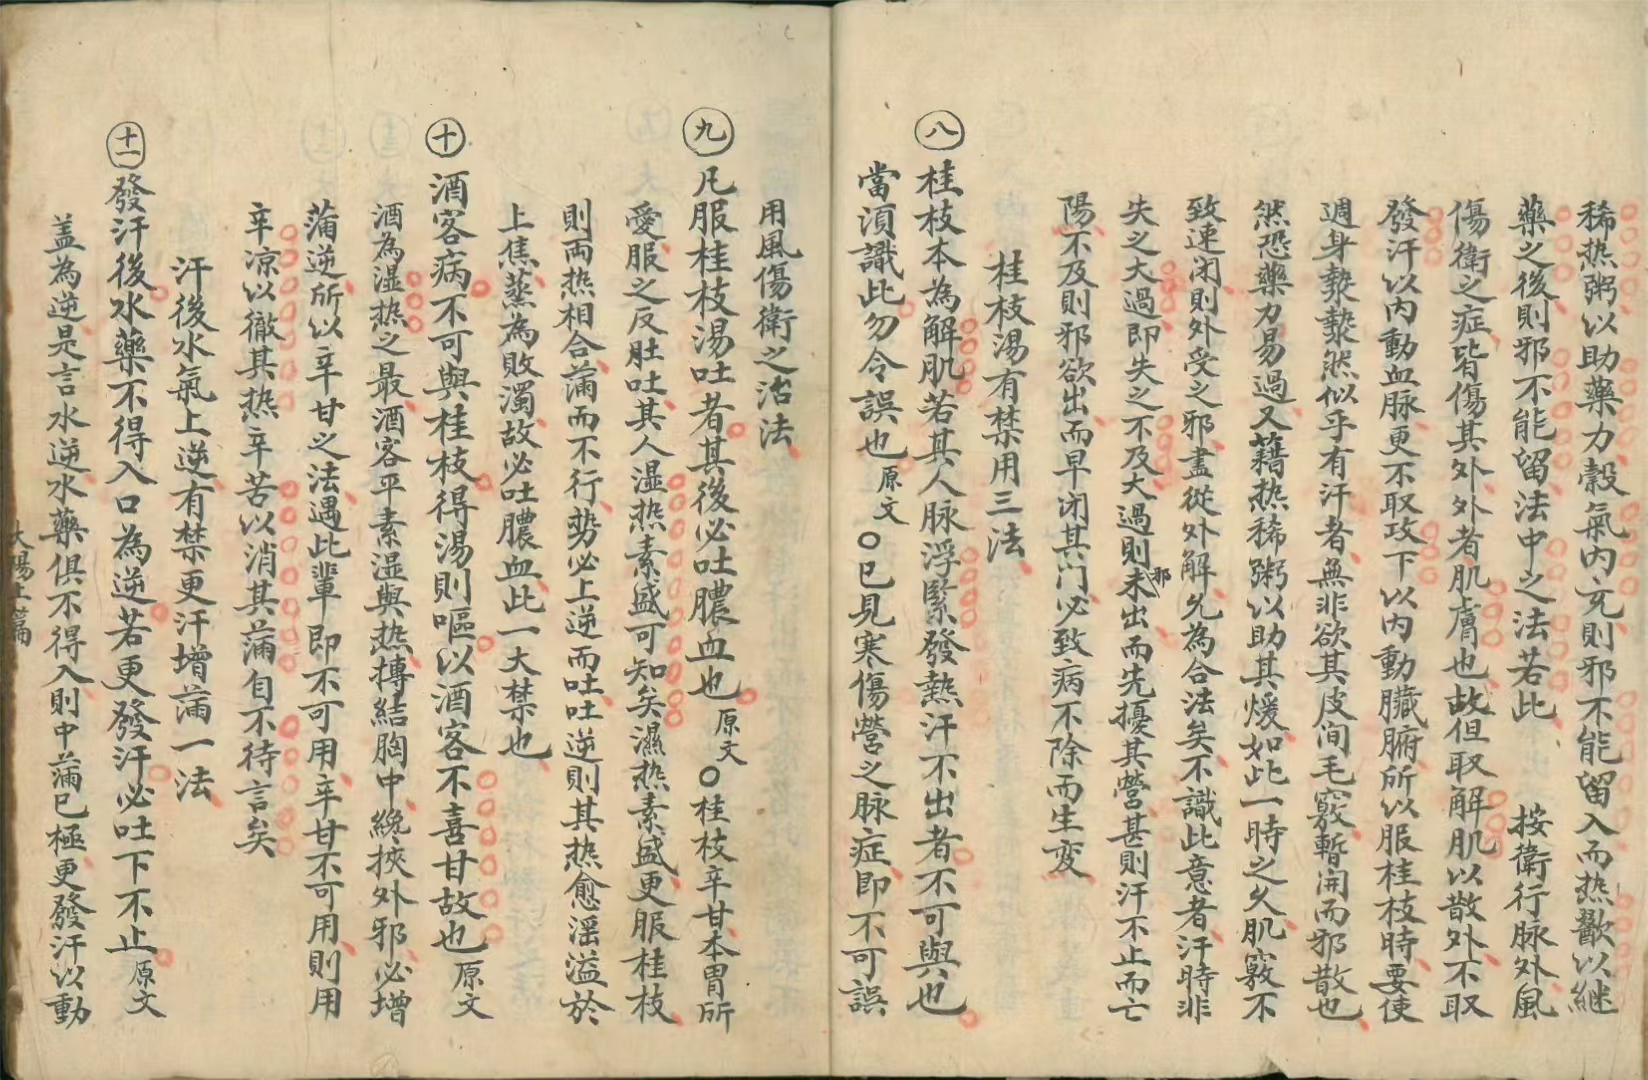 稀热粥以助藥力穀氣內充則邪不能留入而热歠以継
藥之後則邪不能留法中之法若此　按衛行脉外風
傷衛之症皆傷其外外者肌膚也故但取解肌以散外不取
發汗以内動血脉更不取攻下以内動臟腑所以服桂枝時要使
週身漐漐然似乎有汗者無非欲其皮间毛竅暫開而邪散也
然恐藥力易過又藉热稀粥以助其煖如此一時之久肌竅不
致速闭則外受之邪盡從外解允為合法矣不識此意者汗時非
失之大過即失之不及大過則邪未出而先擾其營甚則汗不止而亡
陽不及則邪欲出而早闭其门必致病不除而生变
桂枝湯有禁用三法
八 桂枝本為解肌若其人脉浮緊發熱汗不出者不可與也
當須識此勿令誤也原文○已見寒傷營之脉症即不可誤
用風傷衛之治法
九 凡服桂枝湯吐者其後必吐膿血也原文○桂枝辛甘本胃所
愛服之反肚吐其人湿热素盛可知矣濕热素盛更服桂枝
則両热相合滿而不行势必上逆而吐吐逆則其热愈滛溢於
上焦蒸為敗濁故必吐膿血此一大禁也
十 酒客病不可與桂枝得湯則嘔以酒客不喜甘故也原文
酒為湿热之最酒客平素湿與热搏結胸中纔挾外邪必增
滿逆所以辛甘之法遇此輩即不可用辛甘不可用則用
辛凉以徹其热辛苦以消其滿自不待言矣
汗後水氣上逆有禁更汗增滿一法
十一 發汗後水藥不得入口為逆若更發汗必吐下不止原文
盖為逆是言水逆水藥俱不得入則中滿已極更發汗以動
太陽上篇